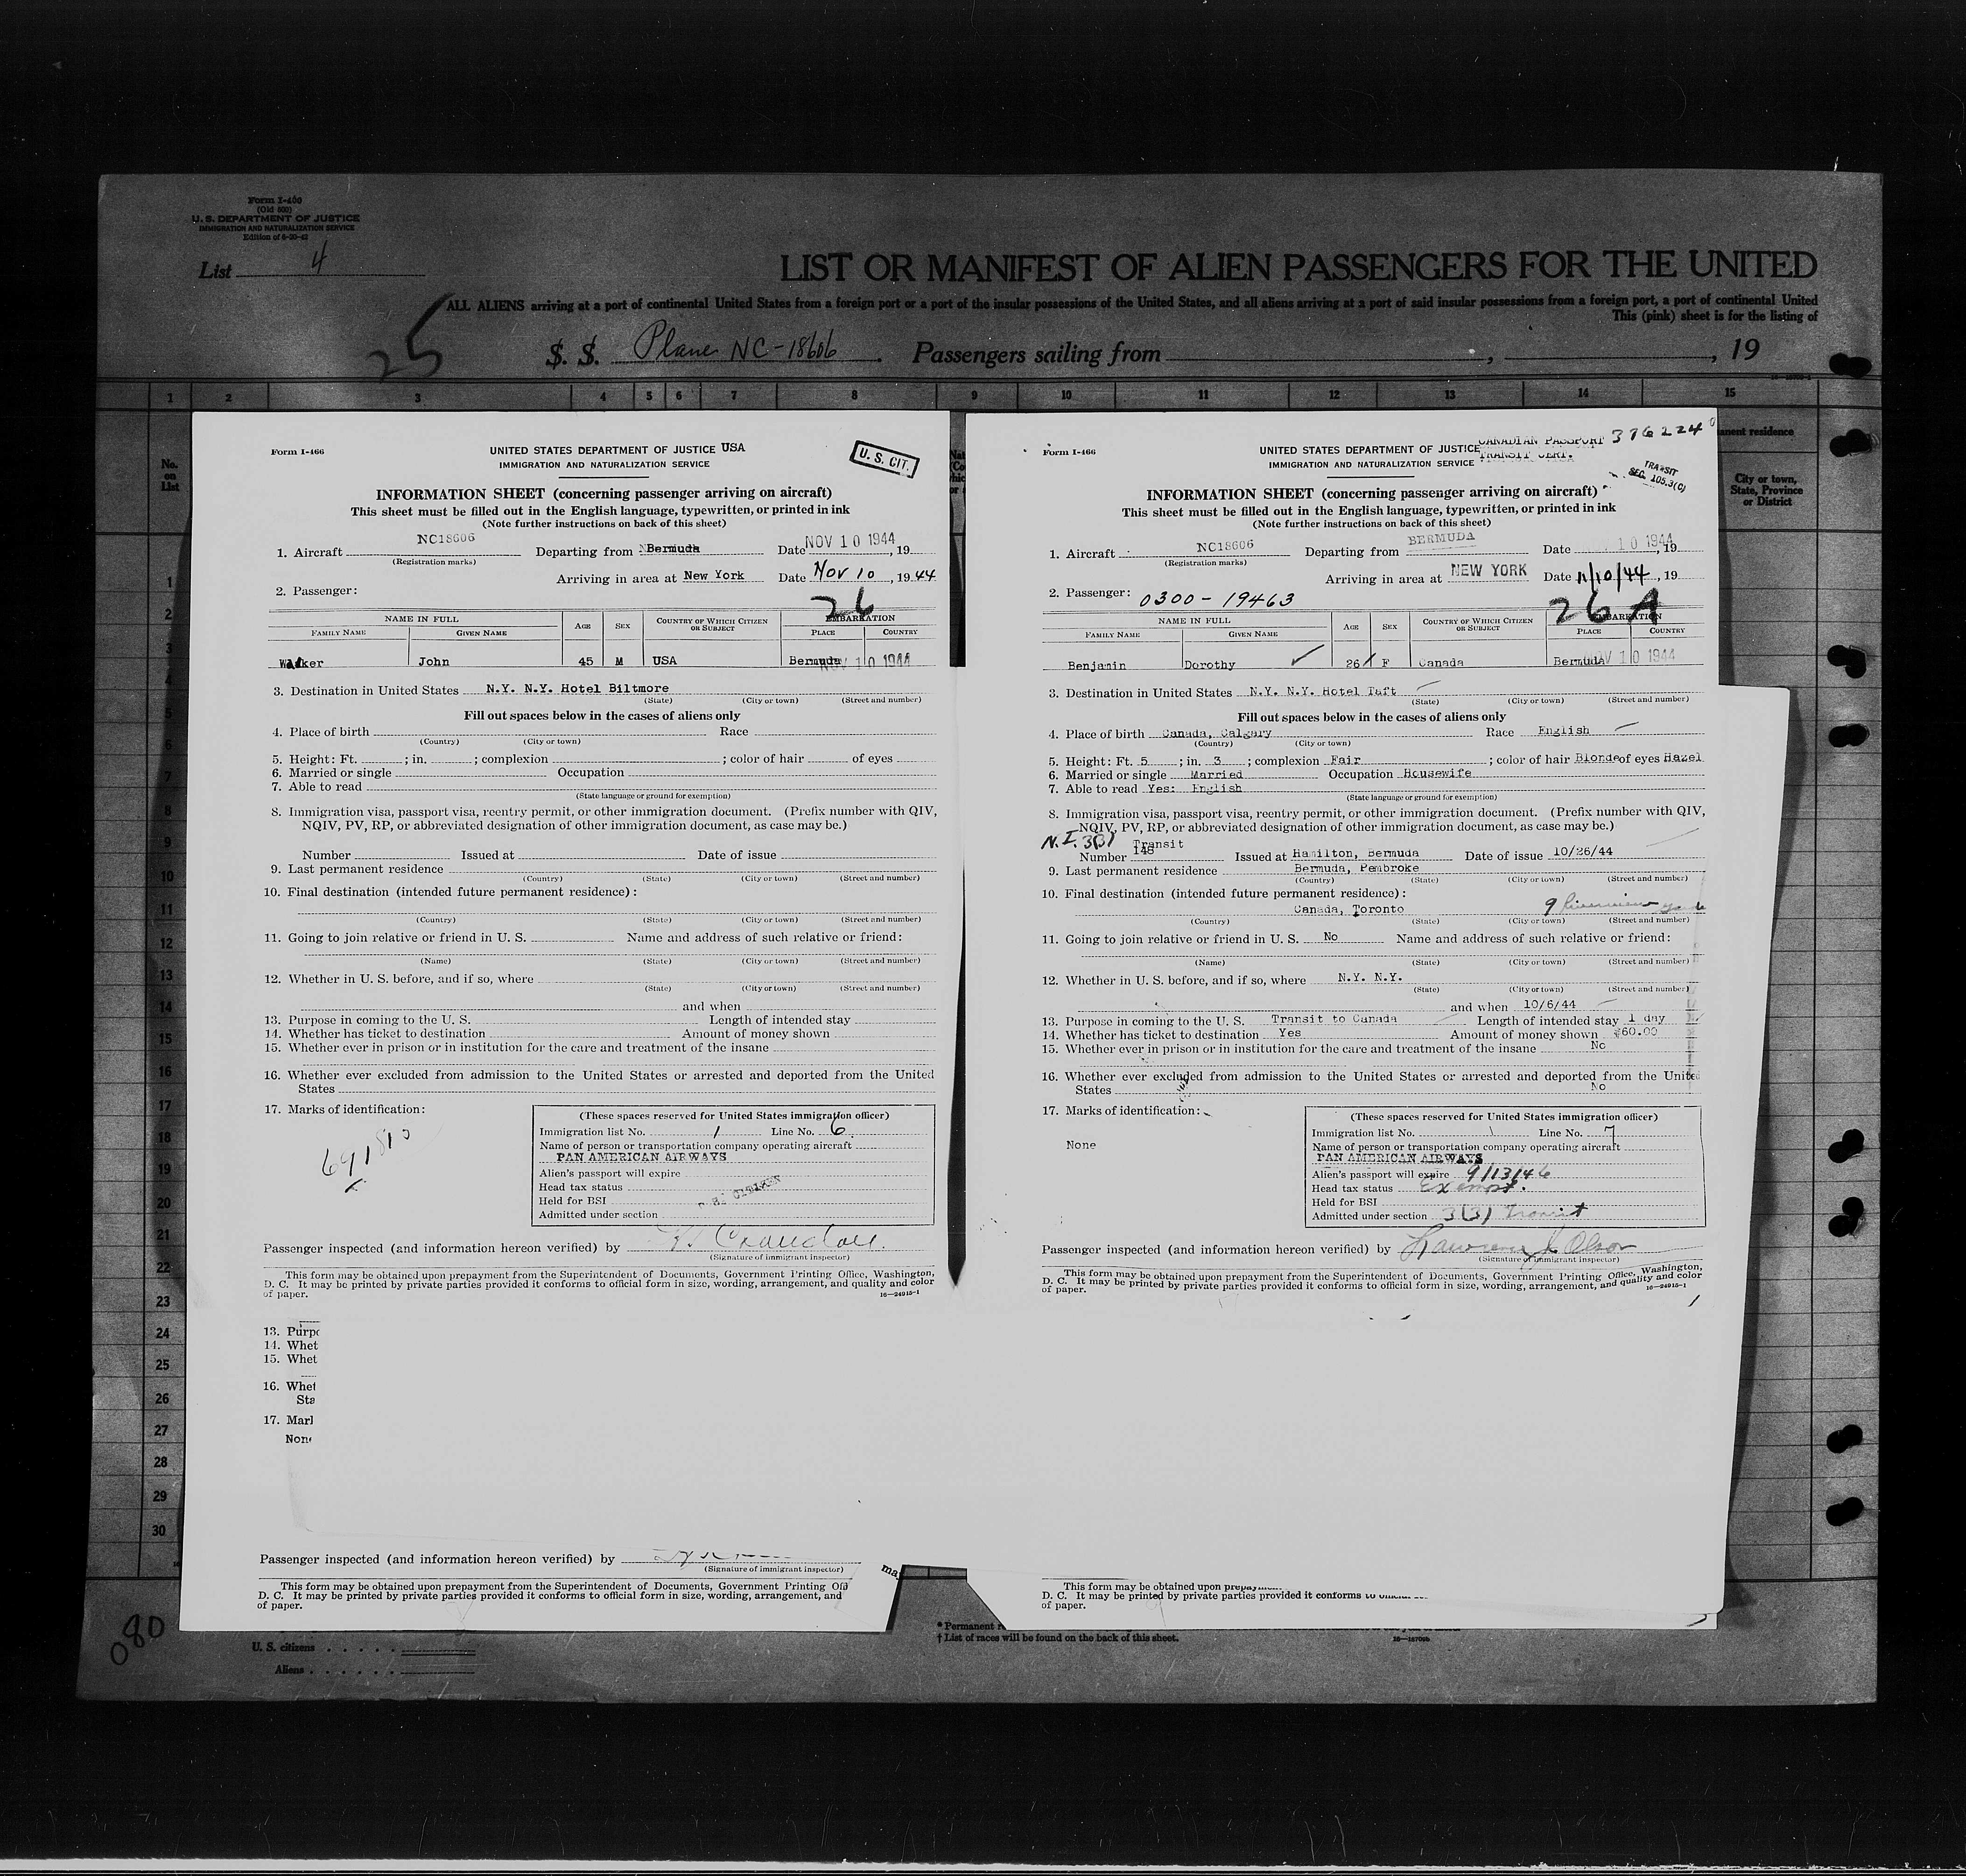 Form I-460
(Old 500)
U. S. DEPARTMENT OF JUSTICE
IMMIGRATION AND NATURALIZATION SERVICE
List 4
LIST OR MANIFEST OF ALIEN PASSENGERS FOR THE UNITED
ALL ALIENS arriving at a port of continental United States from a foreign port or a port of the insular possessions of the United States, and all aliens arriving at a port of said insular possessions from a foreign port, a port of continental United
This (pink) sheet is for the listing of
25
S. S. Plane NC-18606 . Passengers sailing from , , 19
1 2 3 4 5 6 7 8 9 10 11 12 13 14 15
No. on List
City or town, State, Province or District
Form I-466
UNITED STATES DEPARTMENT OF JUSTICE USA
IMMIGRATION AND NATURALIZATION SERVICE
U. S. CIT.
INFORMATION SHEET (concerning passenger arriving on aircraft)
This sheet must be filled out in the English language, typewritten, or printed in ink
(Note further instructions on back of this sheet)
1. Aircraft NC18606 Departing from Bermuda Date NOV 10 1944, 19
(Registration marks)
Arriving in area at New York Date Nov 10, 1944
2. Passenger:
26
NAME IN FULL AGE SEX COUNTRY OF WHICH CITIZEN OR SUBJECT EMBARKATION
FAMILY NAME GIVEN NAME PLACE COUNTRY
Walker John 45 M USA Bermuda NOV 10 1944
3. Destination in United States N.Y. N.Y. Hotel Biltmore
(State) (City or town) (Street and number)
Fill out spaces below in the cases of aliens only
4. Place of birth Race
(Country) (City or town)
5. Height: Ft. ; in. ; complexion ; color of hair of eyes
6. Married or single Occupation
7. Able to read
(State language or ground for exemption)
8. Immigration visa, passport visa, reentry permit, or other immigration document. (Prefix number with QIV,
NQIV, PV, RP, or abbreviated designation of other immigration document, as case may be.)
Number Issued at Date of issue
9. Last permanent residence
(Country) (State) (City or town) (Street and number)
10. Final destination (intended future permanent residence):
(Country) (State) (City or town) (Street and number)
11. Going to join relative or friend in U. S. Name and address of such relative or friend:
(Name) (State) (City or town) (Street and number)
12. Whether in U. S. before, and if so, where
(State) (City or town) (Street and number)
and when
13. Purpose in coming to the U. S. Length of intended stay
14. Whether has ticket to destination Amount of money shown
15. Whether ever in prison or in institution for the care and treatment of the insane
16. Whether ever excluded from admission to the United States or arrested and deported from the United
States
17. Marks of identification:
(These spaces reserved for United States immigration officer)
Immigration list No. 1 Line No. 6
Name of person or transportation company operating aircraft
PAN AMERICAN AIRWAYS
Alien's passport will expire
Head tax status
Held for BSI
Admitted under section
U.S. CITIZEN
Passenger inspected (and information hereon verified) by
(Signature of immigrant inspector)
This form may be obtained upon prepayment from the Superintendent of Documents, Government Printing Office, Washington,
D. C. It may be printed by private parties provided it conforms to official form in size, wording, arrangement, and quality and color
of paper.
16—24915-1
13. Purpo
14. Whet
15. Whet
16. Whet
Sta
17. Marl
Non
Passenger inspected (and information hereon verified) by
(Signature of immigrant inspector)
This form may be obtained upon prepayment from the Superintendent of Documents, Government Printing Off
D. C. It may be printed by private parties provided it conforms to official form in size, wording, arrangement, and
of paper.
Form I-466
UNITED STATES DEPARTMENT OF JUSTICE
IMMIGRATION AND NATURALIZATION SERVICE
CANADIAN PASSPORT 376224
TRANSIT CERT.
TRANSIT
SEC. 105.3(C)
INFORMATION SHEET (concerning passenger arriving on aircraft)
This sheet must be filled out in the English language, typewritten, or printed in ink
(Note further instructions on back of this sheet)
1. Aircraft NC18606 Departing from BERMUDA Date 10 1944, 19
(Registration marks)
Arriving in area at NEW YORK Date 11/10/44, 19
2. Passenger: 0300-19463
26 A
NAME IN FULL AGE SEX COUNTRY OF WHICH CITIZEN OR SUBJECT EMBARKATION
FAMILY NAME GIVEN NAME PLACE COUNTRY
Benjamin Dorothy 26 F Canada Bermuda NOV 10 1944
3. Destination in United States N.Y. N.Y. Hotel Taft
(State) (City or town) (Street and number)
Fill out spaces below in the cases of aliens only
4. Place of birth Canada, Calgary Race English
(Country) (City or town)
5. Height: Ft. 5 ; in. 3 ; complexion Fair ; color of hair Blonde of eyes Hazel
6. Married or single Married Occupation Housewife
7. Able to read Yes: English
(State language or ground for exemption)
8. Immigration visa, passport visa, reentry permit, or other immigration document. (Prefix number with QIV,
NQIV, PV, RP, or abbreviated designation of other immigration document, as case may be.)
N.I. 3(3) Transit
Number 148 Issued at Hamilton, Bermuda Date of issue 10/26/44
9. Last permanent residence Bermuda, Pembroke
(Country) (State) (City or town) (Street and number)
10. Final destination (intended future permanent residence):
Canada, Toronto 9
(Country) (State) (City or town) (Street and number)
11. Going to join relative or friend in U. S. No Name and address of such relative or friend:
(Name) (State) (City or town) (Street and number)
12. Whether in U. S. before, and if so, where N.Y. N.Y.
(State) (City or town) (Street and number)
and when 10/6/44
13. Purpose in coming to the U. S. Transit to Canada Length of intended stay 1 day
14. Whether has ticket to destination Yes Amount of money shown $60.00
15. Whether ever in prison or in institution for the care and treatment of the insane No
16. Whether ever excluded from admission to the United States or arrested and deported from the United
States No
17. Marks of identification:
None
(These spaces reserved for United States immigration officer)
Immigration list No. 1 Line No. 7
Name of person or transportation company operating aircraft
PAN AMERICAN AIRWAYS
Alien's passport will expire 9/13/46
Head tax status Exempt.
Held for BSI
Admitted under section 3(3) Transit
Passenger inspected (and information hereon verified) by Lawrence J. Olson
(Signature of immigrant inspector)
This form may be obtained upon prepayment from the Superintendent of Documents, Government Printing Office, Washington,
D. C. It may be printed by private parties provided it conforms to official form in size, wording, arrangement, and quality and color
of paper.
16—24915-1
This form may be obtained upon prepaym
D. C. It may be printed by private parties provided it conforms to
of paper.
1
2
3
4
5
6
7
8
9
10
11
12
13
14
15
16
17
18
19
20
21
22
23
24
25
26
27
28
29
30
080
U. S. citizens
Aliens
* Permanent r
† List of races will be found on the back of this sheet.